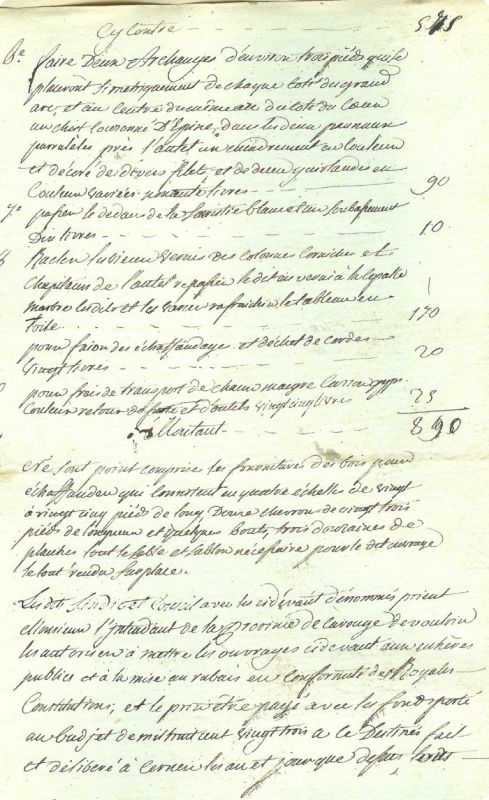 Cy contre - - - - - 575
6.e faire deux Archanges d'environ trois pieds qui se
placeront simetriquement de chaque coté du grand
arc, et au centre du même arc du coté du Cœur
un christ Couronné D'Epine, dans les deux panneaux
parrelèles près l'autel un encadrement en Couleur
et décoré de divers filets, et de deux guirlandes en
Couleur variées nonante livres - - 90
7.o passer le dedans de la en blanc et un soubassement
Dix livres - - - - 10
8 Racler le vieux vernis des Colonnes Corniches et
Chapitaux de l'autel repasser le dit au vernis à la Copalle
marbre les dits et les vaser rafraichir le tableau en
toile - - - - 170
pour façon des échaffaudage et déchet de cordes -
vingt livres - - - - 20
pour frais de transport de chaux maigre Carron gyps
Couleur retour de et d'outils vingt cinq livres 25
Montant - - 890
Ne sont point comprise les fournitures des bois pour
échaffauder qui consistent en quatre échelles de vingt
à vingt cinq pieds de long, Douze chevrons de vingt trois
pieds de longueur et quelques bouts, trois douzaines de
planches tout le sable et sablon nécessaire pour le dit ouvrage
le tout rendu sur place.
Lesdits Sindic et Conseil avec les cidevant dénommés prient
Monsieur l'Intendant de la province de Carouge de vouloir
les autoriser à mettre les ouvrages cidevant aux enchères
publics et à la mise au rabais en Conformité des Royales
Constitutions; et le prix être payé avec les fonds porté
au budjet de mil huit cent vingt trois a ce Destinés fait
et déliberé à Cernex les an et jour que dessus lesdits